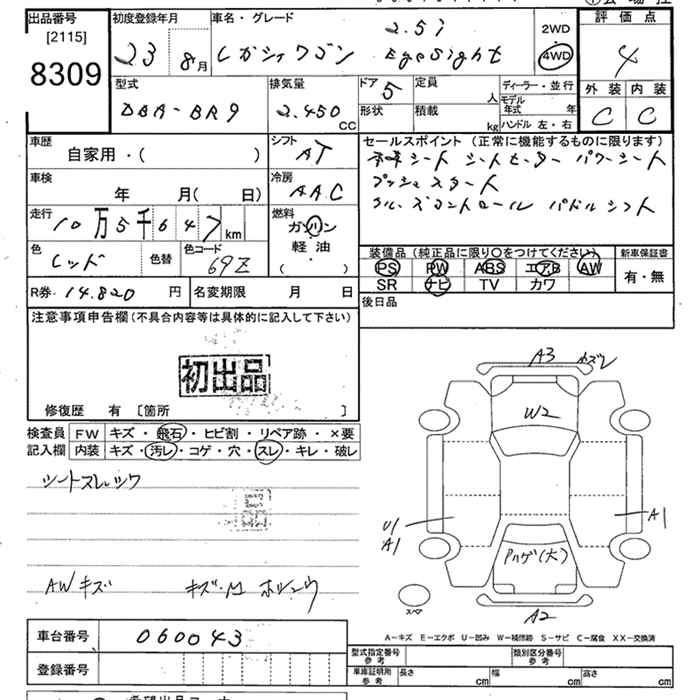 出品番号
[2115]
8309
初度登録年月
23 8月
車名・グレード
2.5i
レガシィワゴン EyeSight
2WD
4WD
評価点
4
外装 内装
C C
型式
DBA-BR9
排気量
2.450
CC
ドア
5
形状
定員
人
積載
kg
ディーラー・並行
モデル年式
年
ハンドル 左・右
車歴
自家用・( )
シフト
AT
車検
年 月( 日)
冷房
AAC
走行
10万5千647km
燃料
ガソリン
軽油
( ・ )
色
レッド
色替
色コード
69Z
R券 14.820 円
名変期限 月 日
セールスポイント (正常に機能するものに限ります)
本革シート シートヒーター パワーシート
プッシュスタート
クルーズコントロール パドルシフト
装備品 (純正品に限り○をつけてください)
新車保証書
PS PW ABS エアB AW
SR ナビ TV カワ
有・無
後日品
注意事項申告欄(不具合内容等は具体的に記入して下さい)
初出品
修復歴 有 [箇所 ]
検査員記入欄
FW キズ・飛石・ヒビ割・リペア跡・×要
内装 キズ・汚レ・コゲ・穴・スレ・キレ・破レ
シートスレシワ
AWキズ
A3 キズレ
W2
U1
A1
A1
Pハゲ(大)
スペア
A2
A-キズ E-エクボ U-凹み W-補修跡 S-サビ C-腐食 XX-交換済
車台番号 060043
登録番号
型式指定番号 参考
類別区分番号 参考
車庫証明用 参考 長さ cm 幅 cm 高さ cm